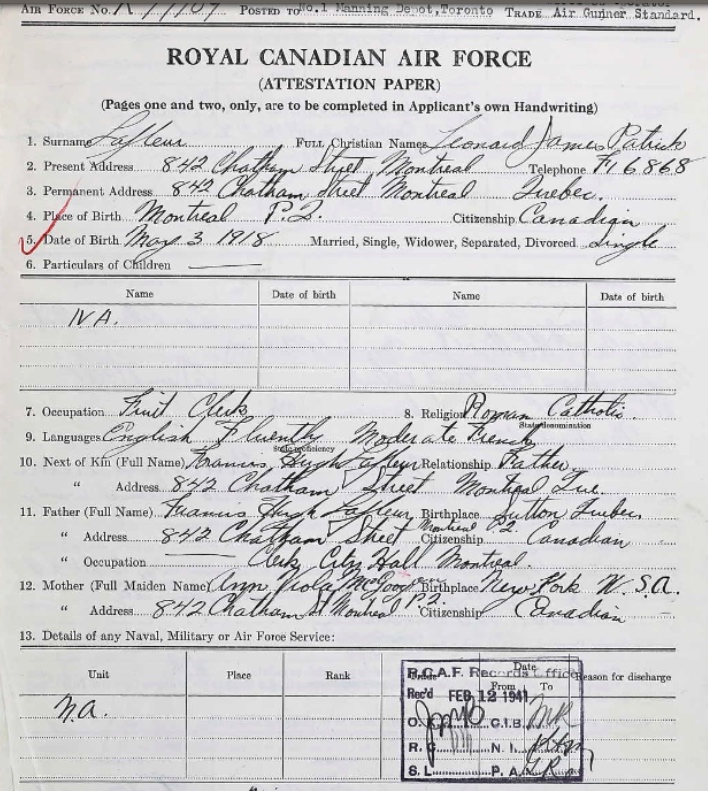 AIR FORCE No. R / 77707 POSTED TO No.1 Manning Depot, Toronto TRADE Air Gunner Standard.
ROYAL CANADIAN AIR FORCE
(ATTESTATION PAPER)
(Pages one and two, only, are to be completed in Applicant's own Handwriting)
1. Surname Lafleur FULL Christian Names Leonard James Patrick
2. Present Address 842 Chatham Street Montreal Telephone FI 6868
3. Permanent Address 842 Chatham Street Montreal Quebec.
4. Place of Birth Montreal P.Q. Citizenship Canadian
5. Date of Birth May 3 1918 Married, Single, Widower, Separated, Divorced Single
6. Particulars of Children
Name Date of birth Name Date of birth
N.A.
7. Occupation Fruit Clerk 8. Religion Roman Catholic
State denomination
9. Languages English Fluently Moderate French
State proficiency
10. Next of Kin (Full Name) Francis Hugh Lafleur Relationship Father
" Address 842 Chatham Street Montreal Que.
11. Father (Full Name) Francis Hugh Lafleur Birthplace Sutton Quebec
" Address 842 Chatham Street Montreal P.Q. Citizenship Canadian
" Occupation Clerk City Hall Montreal.
12. Mother (Full Maiden Name) Ann Viola Birthplace New York U.S.A.
" Address 842 Chatham St Montreal P.Q. Citizenship Canadian
13. Details of any Naval, Military or Air Force Service:
Unit Place Rank Date From To Reason for discharge
N.A.
R.C.A.F. Records Office
Rec'd FEB 12 1941
O. G.I.B.
R.C. N.I.
S.L. P.A.